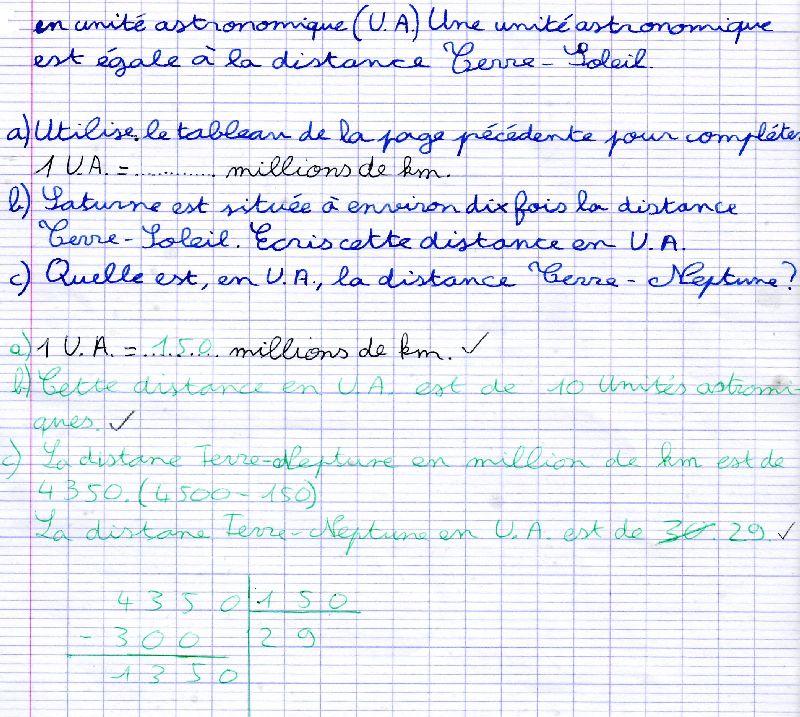 en unité astronomique (U.A) Une unité astronomique
est égale à la distance Terre-Soleil.
a) Utilise le tableau de la page pécédente pour compléter
1 U.A. = ............ millions de km.
b) Saturne est située à environ dix fois la distance
Terre-Soleil. Ecris cette distance en U.A.
c) Quelle est, en U.A., la distance Terre-Neptune?
a) 1 U.A. = ..150.. millions de km. ✓
b) Cette distance en U.A. est de 10 Unités astromi-
ques. ✓
c) La distane Terre-Neptune en million de km est de
4350. (4500-150)
La distane Terre-Neptune en U.A. est de 30. 29. ✓
4350 150
- 300 29
1350